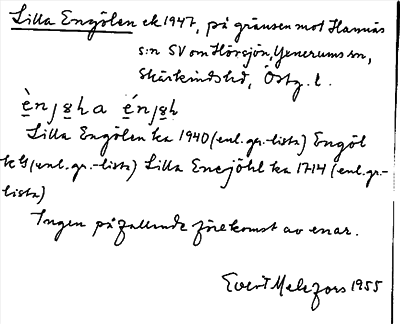 Lilla Engölen ek 1947, på gränsen mot Hannäs
s:n SV om Hörsjön, Yxnerums sn,
Skärkinds hd, Östg. l.
Lilla Engölen ka 1940 (enl. gr.-lista) Engöl
k G (enl. gr.-lista) Lilla Enejöhl ka 1714 (enl. gr.-
lista)
Ingen påfallande förekomst av enar.
Evert Melefors 1955